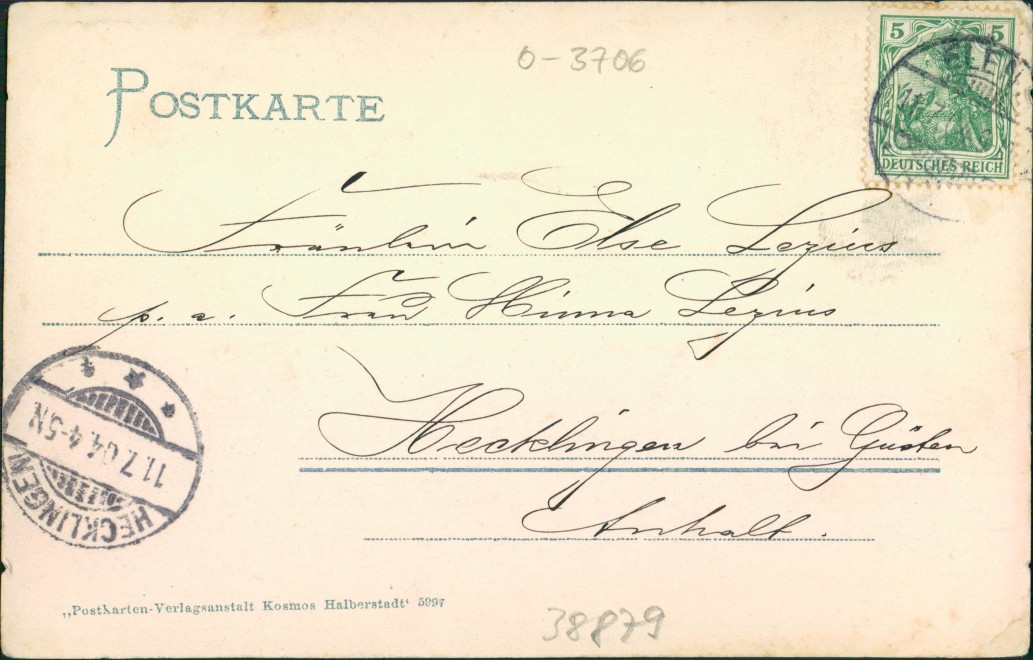 0-3706
POSTKARTE
5 5
DEUTSCHES REICH
ELEN
Fräulein Else Lezius
p. a. Frau Minna Lezius
Hecklingen bei Güsten
Anhalt.
HECKLINGEN
11.7.04.4-5N.
„Postkarten-Verlagsanstalt Kosmos Halberstadt‘ 5997
38879